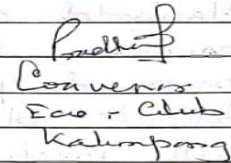 Pradhan
Convenor
Eco - Club
Kalimpong